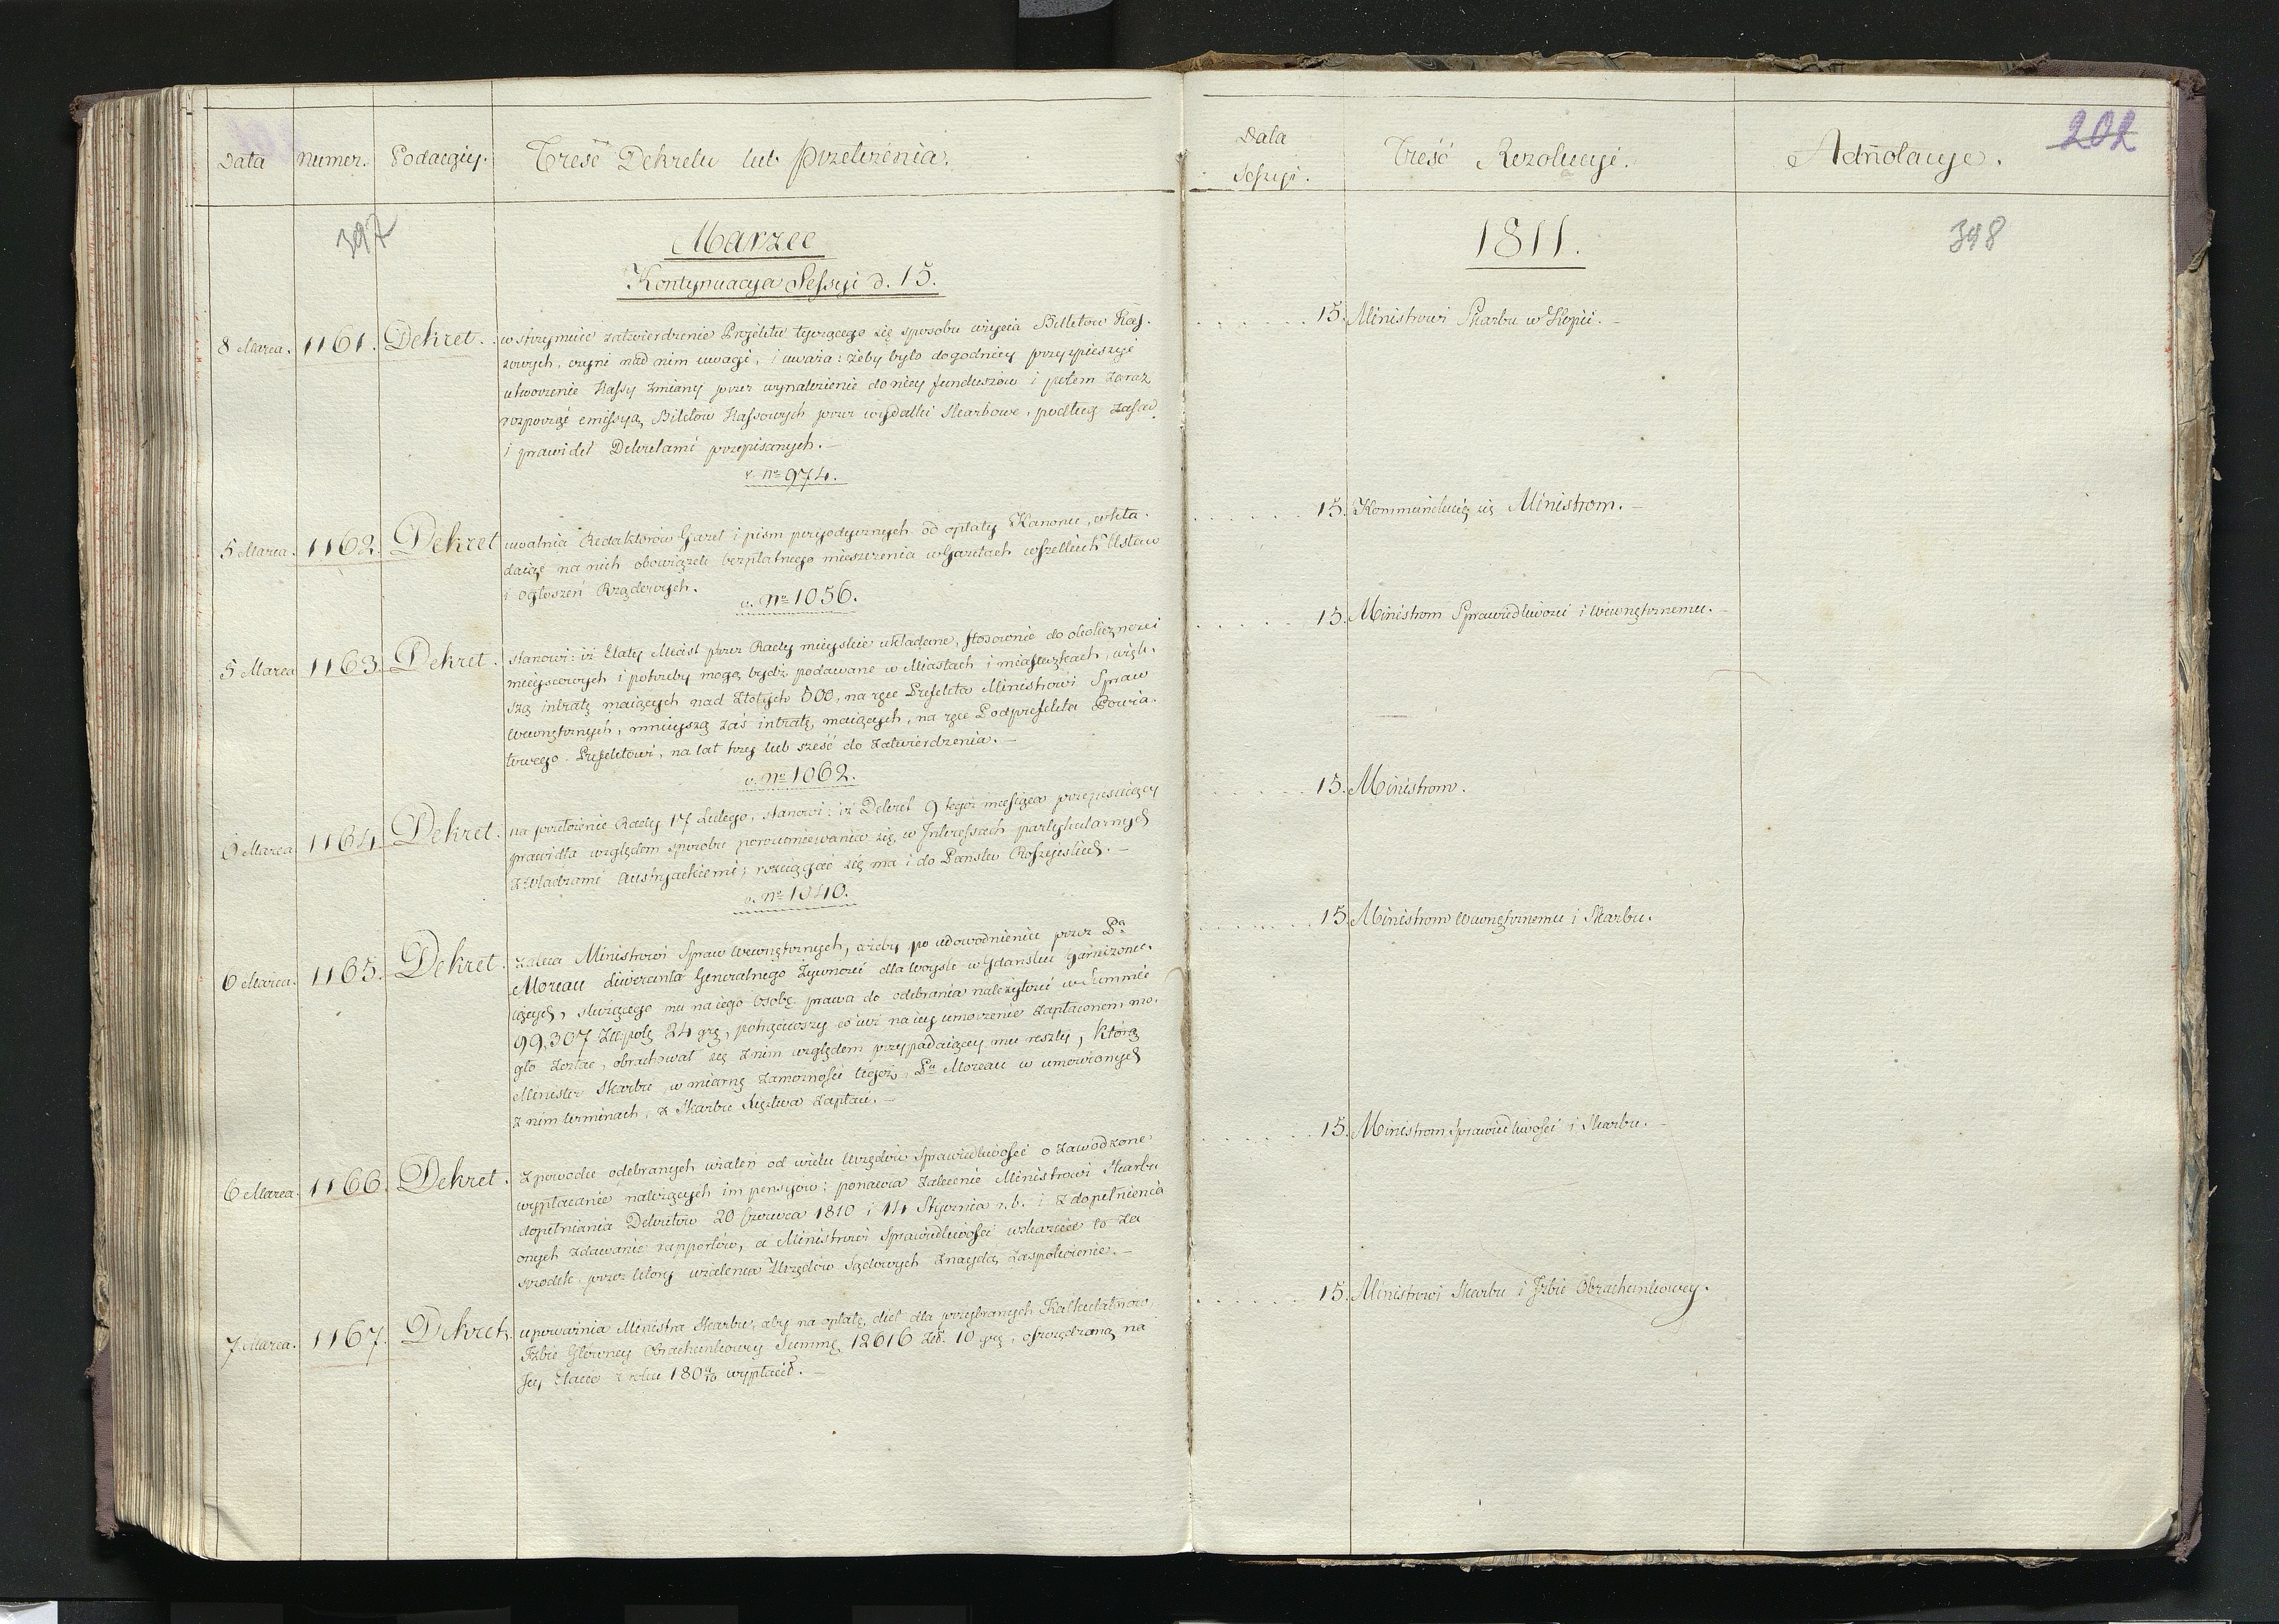 Data Numer. Podaiący. Treść Dekretu lub Przełożenia.
397
Marzec
Kontynuacya Sessyi d. 15.
8 Marca. 1161. Dekret. wstrzymuie zatwierdzenie Projektu tyczącego się sposobu użycia Billetów Kas-
sowych, czyni nad nim uwagi, i uważa: żeby było dogodniey przyspieszyć
utworzenie Kassy zmiany przez wynalezienie do niey funduszów i potem zaraz
rozpocząć emissyą Biletów Kassowych przez wydatki Skarbowe, podług zasad
i prawideł Dekretami przepisanych.—
v. No 974.
5 Marca. 1162. Dekret uwalnia Redaktorów Gazet i pism peryodycznych od opłaty Kanonu, wkła-
daiąc na nich obowiązek bezpłatnego mieszczenia w Gazetach wszelkich Ustaw
i ogłoszeń Rządowych.
v. No 1056.
5 Marca 1163. Dekret. stanowi: iż Etaty Miast przez Rady mieyskie układane, stosownie do okoliczności
mieyscowych i potrzeby mogą bydź podawane w Miastach i miasteczkach, więk-
szą intratę maiących nad Złotych 500, na ręce Prefekta Ministrowi Spraw
Wewnętrznych, mnieyszą zaś intratę maiących, na ręce Podprefekta Powia-
towego Prefektowi, na lat trzy lub sześć do zatwierdzenia.—
v. No 1062.
6 Marca 1164. Dekret. na przełożenie Rady 17 Lutego, stanowi: iż Dekret 9 tegoż miesiąca przepisuiący
prawidła względem sposobu porozumiewania się w Interessach partykularnych
z Władzami Austryackiemi; rozciągać się ma i do Państw Rossyiskich.—
v. No 1040.
6 Marca. 1165. Dekret. zaleca Ministrowi Spraw Wewnętrznych, ażeby po udowodnieniu przez Pa
Moreau liweranta Generalnego Żywności dla Woysk w Gdańsku garnizonu-
iących, służącego mu na iego osobę prawa do odebrania należytości w Summie
99,307 Złł.pols 24 grs, potrąciwszy co iuż na iey umorzenie zapłaconem mo-
gło zostać, obrachował się z nim względem przypadaiącey mu reszty, którą
Minister Skarbu w miarę zamożności tegoż, Pu Moreau w umówionych
z nim terminach, z Skarbu Księstwa zapłaci.—
6 Marca. 1166. Dekret. z powodu odebranych użaleń od wielu Urzędów Sprawiedliwości o zawodzone
wypłacanie należących im pensyów: ponawia zalecenie Ministrowi Skarbu
dopełniania Dekretów 20 Czerwca 1810 i 14 Stycznia r. b. i z dopełnienia
onych zdawanie rapportów, a Ministrowi Sprawiedliwości wskazuie to za
środek, przez który użalenia Urzędów Sądowych znaydą zaspokoienie.—
7 Marca. 1167. Dekret. upoważnia Ministra Skarbu, aby na opłatę diet dla przybranych Kalkulatorów
Izbie Główney Obrachunkowey Summę 12616 Złł. 10 grs, oszczędzoną na
Jey Etacie z roku 180 9/10 wypłacił.—
Data Sessyi. Treść Rezolucyi. Adnotacye. 202
1811. 398
15. Ministrowi Skarbu w Kopii.—
15. Kommunikuią się Ministrom.—
15. Ministrom Sprawiedliwości i Wewnętrznemu.—
15. Ministrom.
15. Ministrom Wewnętrznemu i Skarbu.
15. Ministrom Sprawiedliwości i Skarbu.—
15. Ministrowi Skarbu i Izbie Obrachunkowey.